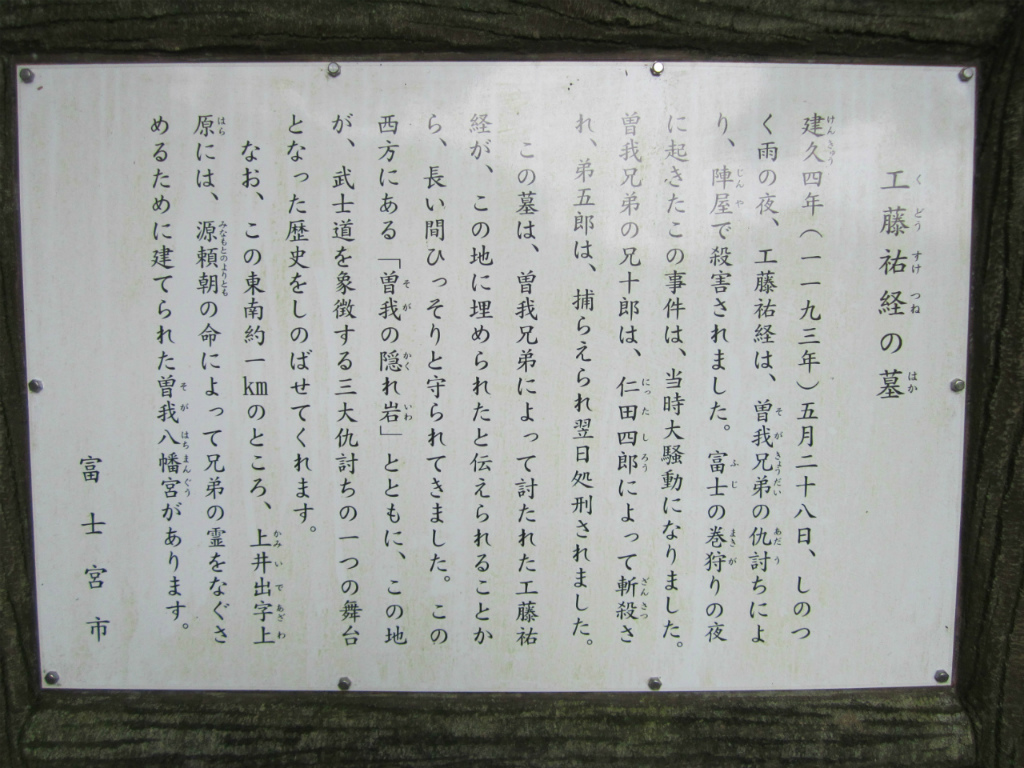 工藤祐経の墓
建久四年（一一九三年）五月二十八日、しのつ
く雨の夜、工藤祐経は、曽我兄弟の仇討ちによ
り、陣屋で殺害されました。富士の巻狩りの夜
に起きたこの事件は、当時大騒動になりました。
曽我兄弟の兄十郎は、仁田四郎によって斬殺さ
れ、弟五郎は、捕らえられ翌日処刑されました。
この墓は、曽我兄弟によって討たれた工藤祐
経が、この地に埋められたと伝えられることか
ら、長い間ひっそりと守られてきました。この
西方にある「曽我の隠れ岩」とともに、この地
が、武士道を象徴する三大仇討ちの一つの舞台
となった歴史をしのばせてくれます。
なお、この東南約一kmのところ、上井出字上
原には、源頼朝の命によって兄弟の霊をなぐさ
めるために建てられた曽我八幡宮があります。
富士宮市